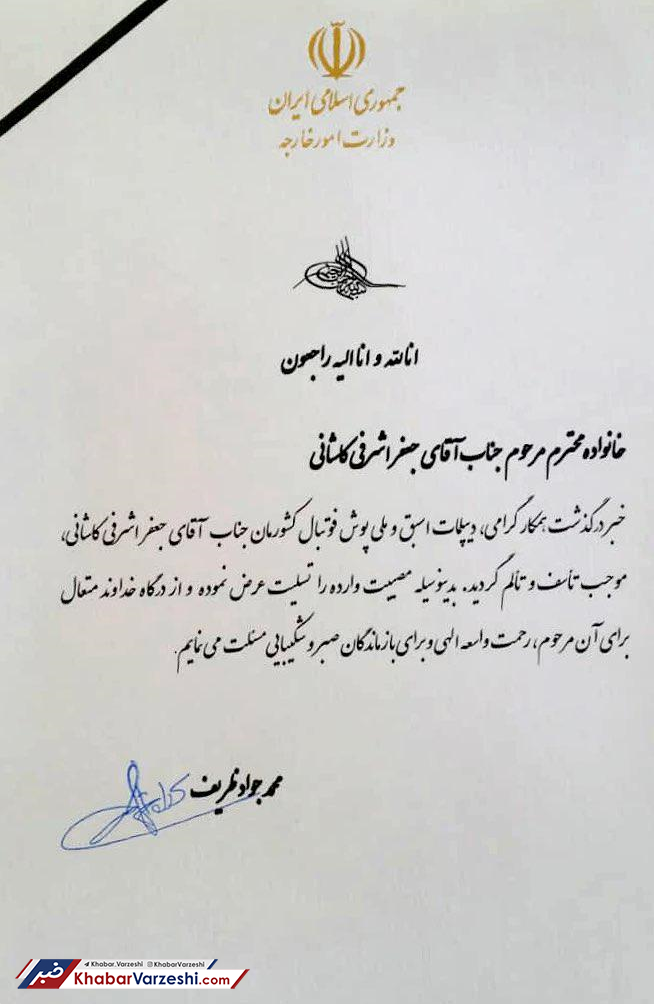 جمهوری اسلامی ایران
وزارت امور خارجه
انالله و انا الیه راجعون
خانواده محترم مرحوم جناب آقای جعفر اشرفی کاشانی
خبر درگذشت همکار گرامی، دیپلمات اسبق و ملی پوش فوتبال کشورمان جناب آقای جعفر اشرفی کاشانی،
موجب تأسف و تألم گردید. بدینوسیله مصیبت وارده را تسلیت عرض نموده و از درگاه خداوند متعال
برای آن مرحوم، رحمت واسعه الهی و برای بازماندگان صبر و شکیبایی مسئلت می نمایم.
محمد جواد ظریف
خبر
Khabar_Varzeshi KhabarVarzeshi
KhabarVarzeshi.com